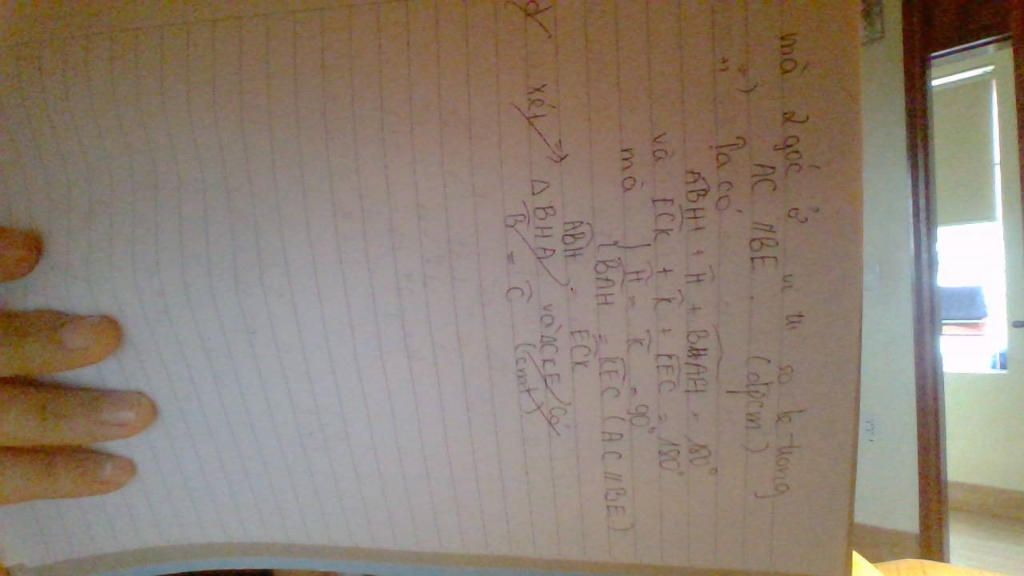 mà 2 góc ở vị trí so le trong
=) AC // BE. (đpcm)
Ta có
ABH + H + BHAH = 180°
và ECK + K + EEC = 180°
mà { H = K = 90°
BAH = KEC (AC // BE)
=) ABH = ECK
xét Δ BHA và Δ CKE có
B = C (cmt)